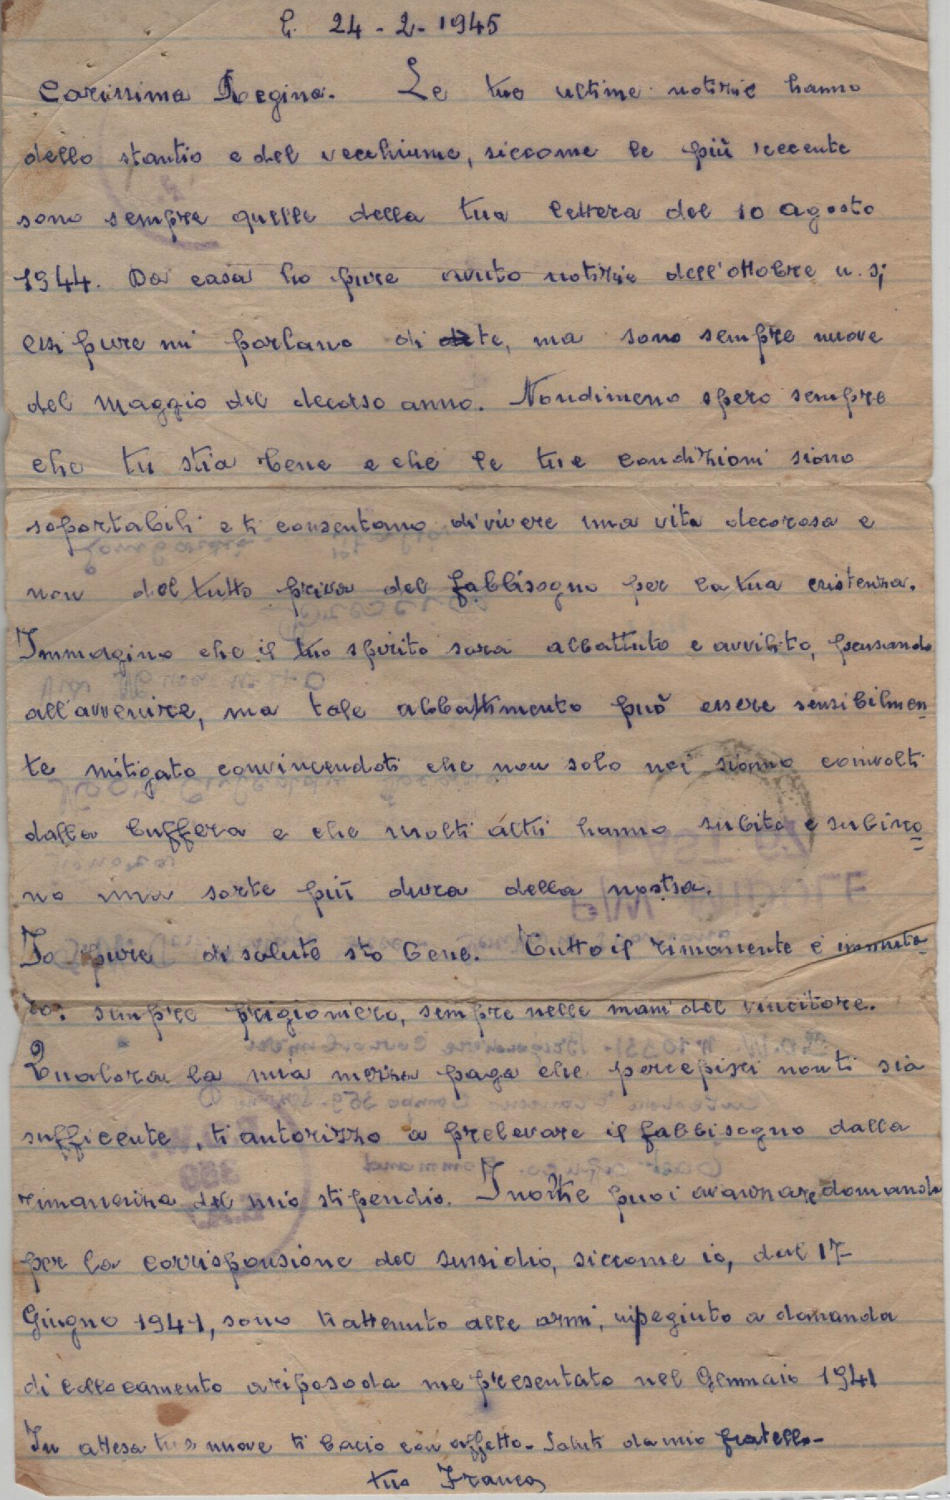 24-2-1945
Carissima Regina. Le tue ultime notizie hanno
dello stantio e del vecchiume, siccome le più recente
sono sempre quelle della tua lettera del 10 agosto
1944. Da casa ho pure avuto notizie dell'ottobre u.s;
essi pure mi parlano di te, ma sono sempre nuove
del maggio del decorso anno. Nondimeno spero sempre
che tu stia bene e che le tue condizioni siano
soportabili e ti consentano di vivere una vita decorosa e
non del tutto priva del fabbisogno per la tua esistenza.
Immagino che il tuo spirito sara abbattuto e avvilito, pensando
all'avvenire, ma tale abbattimento può essere sensibilmen-
te mitigato convincendoti che non solo noi siamo coinvolti
dalla buffera e che molti altri hanno subito e subiro
no una sorte più dura della nostra.
Io pure di salute sto bene. Tutto il rimanente è immuta-
to: sempre prigioniero, sempre nelle mani del vincitore.
Qualora la mia mezza paga che percepisci non ti sia
sufficente, ti autorizzo a prelevare il fabbisogno dalla
rimanenza del mio stipendio. Inoltre puoi avanzare domanda
per la corrisponsione del sussidio, siccome io, dal 17
Giugno 1941, sono trattenuto alle armi, a domanda
di collocamento a riposo da me presentato nel Gennaio 1941
In attesa tue nuove ti bacio con affetto - Saluti da mio fratello -
tuo Franco